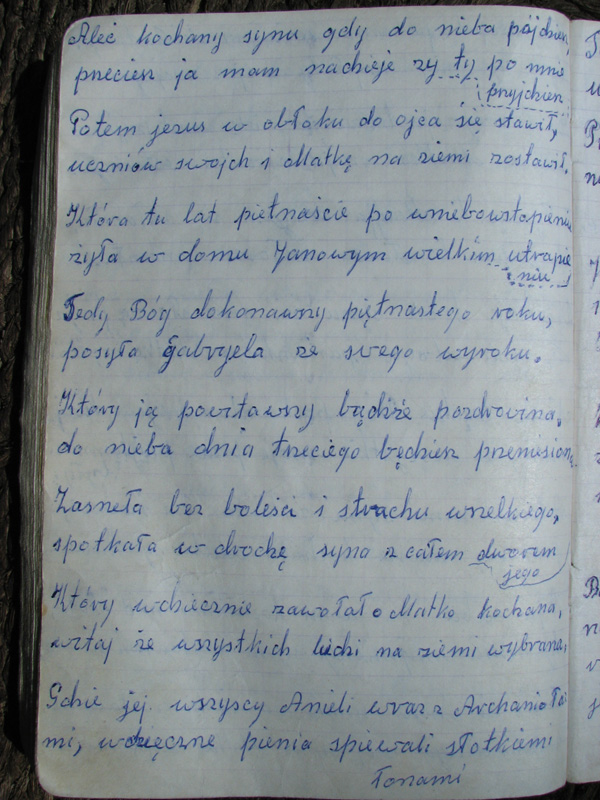 Ależ kochany synu gdy do nieba pójdziesz,
przeciesz ja mam nadzieje zy ty po mnie
i przyjdziesz
Potem jezus w obłaku do ojca się stawił,
uczniów swojch i Matkę na ziemi zostawił.
Która tu lat piętnaście po wniebowstąpieniu
żyła w domu Janowym wielkim utrapie
niu
Tedy Bóg dokonawszy piętnastego roku,
posyła gabryjela ze swego wyroku.
Który ją powitawszy bądźże pozdrowina,
do nieba dnia trzeciego będziesz przeniesiona
Zasneła bez boleści i strachu wszelkiego,
spotkała w drodzę syna z całem dworem
jego
Który wdziecznie zawołał o Matko kochana,
witaj ze wszystkich ludzi na ziemi wybrana,
Gdzie jej wszyscy Anieli wraz z Archanioła
mi, wdzięczne pienia spiewali słotkiemi
tonami